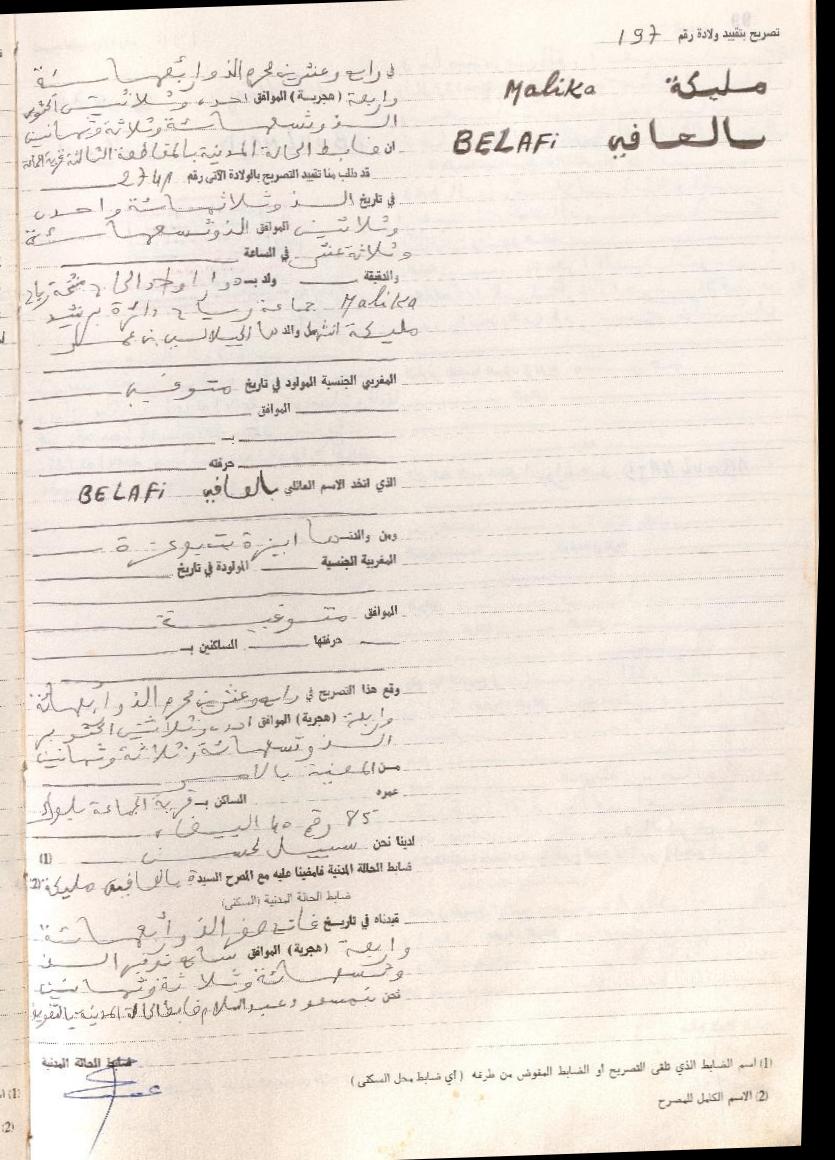 تصريح بتقييد ولادة رقم 197
مليكة Malika
بالعافي BELAFi
في رابع وعشرين محرم الف واربعمائة
واربعة (هجرية) الموافق احد وثلاثين اكتوبر
الف وتسعمائة وثلاثة وثمانين
ان ضابط الحالة المدنية بالمقاطعة الثالثة
قد طلب منا تقييد التصريح بالولادة الآتى رقم 2741
في تاريخ الف وثلاثمائة واحد
وثلاثين الموافق الف وتسعمائة
وثلاثة عشر في الساعة
والدقيقة ولد بـ دوار اولاد الحاج
Malika جماعة رياح دائرة برشيد
مليكة والدها الجيلالي بن
المغربي الجنسية المولود في تاريخ متوفى
الموافق
بـ
حرفته
الذي اتخد الاسم العائلي بالعافي BELAFi
ومن والدتها ايزة بت بوعزة
المغربية الجنسية المولودة في تاريخ
الموافق متوفية
حرفتها الساكنين بـ
وقع هذا التصريح في رابع وعشرين محرم الف واربعمائة
واربعة (هجرية) الموافق احد وثلاثين اكتوبر
الف وتسعمائة وثلاثة وثمانين
من المعنية بالامر
عمره الساكن بـ قرية الجماعة بلوك
85 رقم 40 البيضاء
لدينا نحن لحسن (1)
ضابط الحالة المدنية فامضينا عليه مع المصرح السيدة بالعافي مليكة (2)
ضابط الحالة المدنية (السكنى)
قيدناه في تاريخ فاتح صفر الف واربعمائة
واربعة (هجرية) الموافق سابع نونبر الف
وتسعمائة وثلاثة وثمانين
نحن عبد السلام ضابط الحالة المدنية بالتفويض
ضابط الحالة المدنية
(1) اسم الضابط الذي تلقى التصريح أو الضابط المفوض من طرفه (أي ضابط محل السكنى)
(2) الاسم الكامل للمصرح